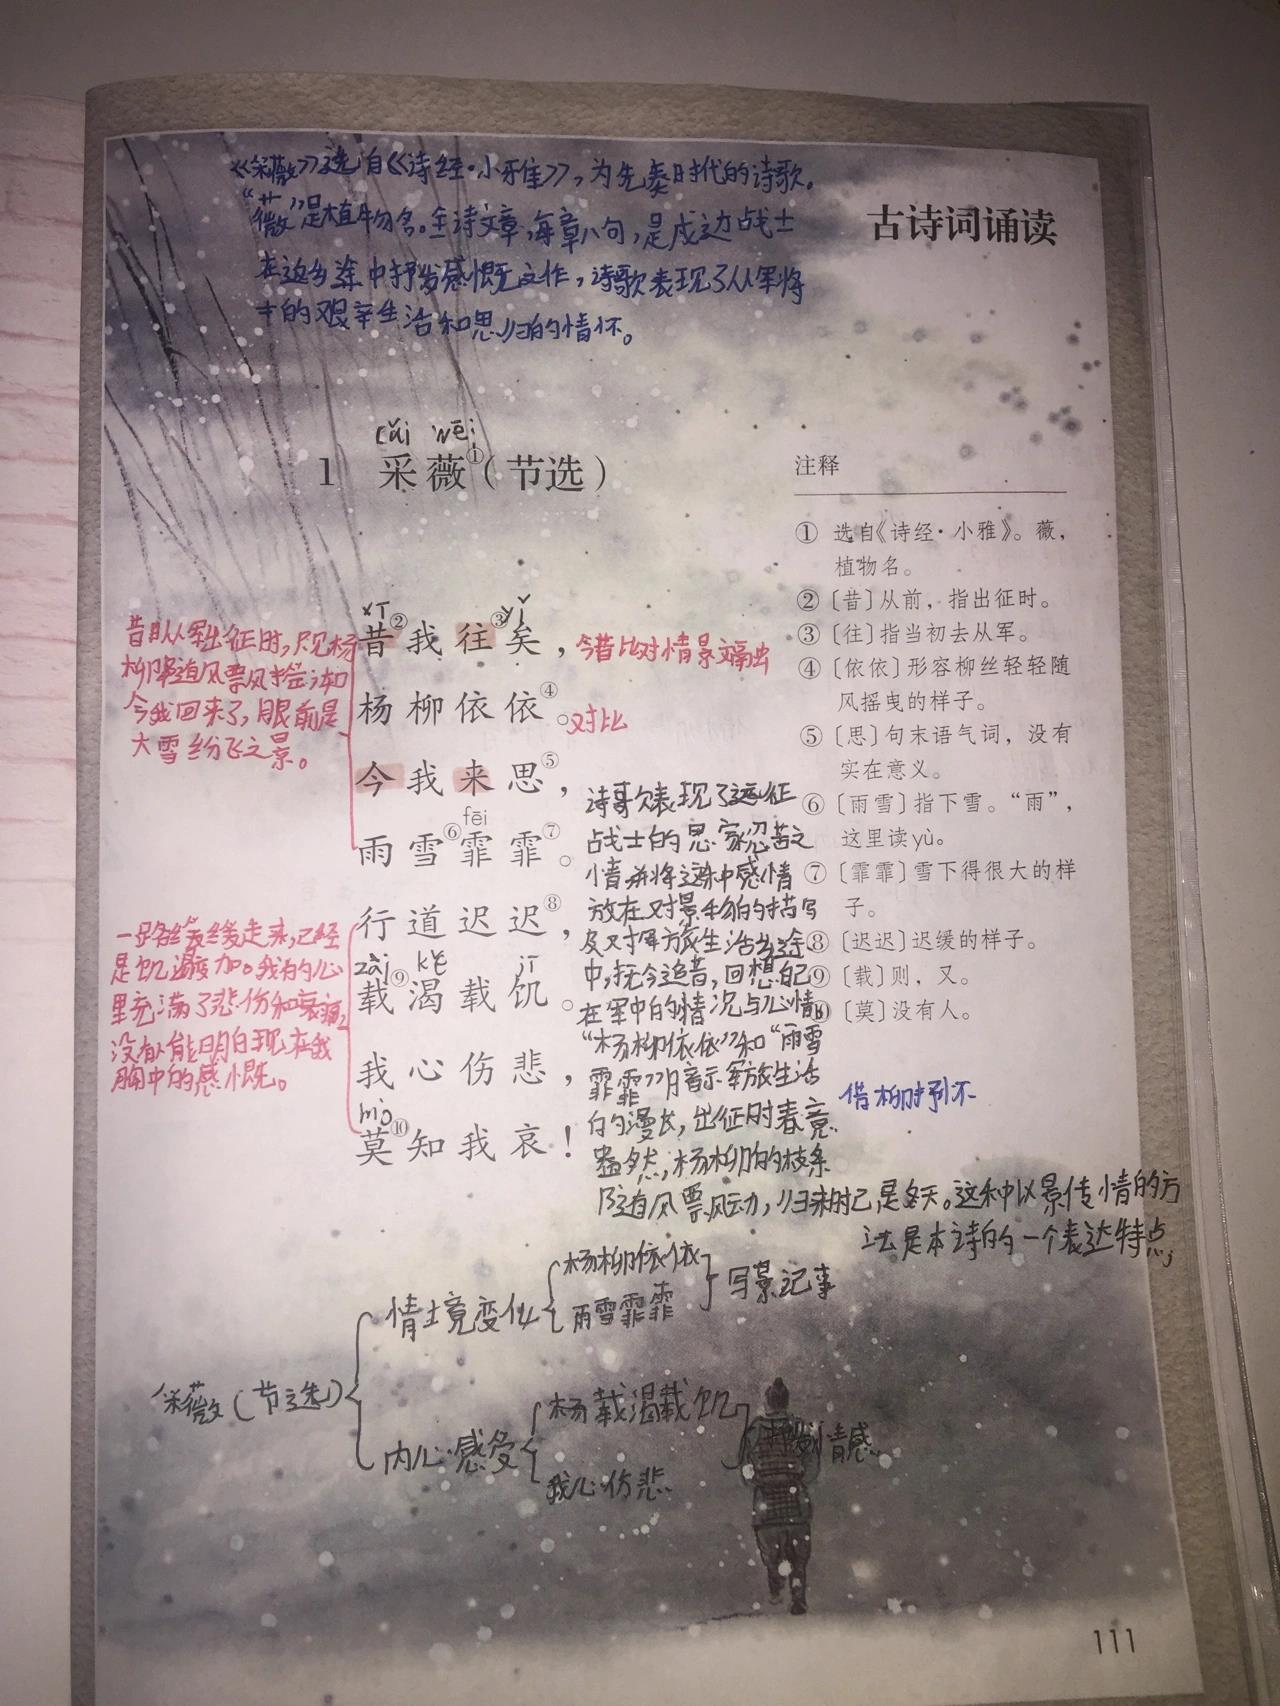 《采薇》选自《诗经·小雅》，为先秦时代的诗歌。
“薇”是植物名。全诗六章，每章八句，是戍边战士
在返乡途中抒发感慨之作，诗歌表现了从军将
士的艰辛生活和思归的情怀。
古诗词诵读
cǎi wēi
1 采薇①（节选）
xī yǐ
昔②我往③矣，
杨柳依依④。
今我来思⑤，
fēi
雨雪⑥霏霏⑦。
行道迟迟⑧，
zài kě jī
载⑨渴载饥。
我心伤悲，
mò
莫⑩知我哀！
昔日从军出征时，只见杨
柳随风飘
今我回来了，眼前是
大雪纷飞之景。
今昔比对情景交融
对比
一路缓缓走来，已经
是饥渴交加。我的心
里充满了悲伤和哀痛，
没有人能明白现在我
胸中的感慨。
诗歌表现了远征
战士的思家忍苦之
情并将这种感情
放在对景物的描写
及对军旅生活当途
中，抚今追昔，回想自己
在军中的情况与心情。
“杨柳依依”和“雨雪
霏霏”暗示军旅生活
的漫长，出征时春意
盎然，杨柳的枝条
随风飘动，归来时已是冬天。这种以景传情的方
法是本诗的一个表达特点，
借柳抒怀
注释
① 选自《诗经·小雅》。薇，
植物名。
②〔昔〕从前，指出征时。
③〔往〕指当初去从军。
④〔依依〕形容柳丝轻轻随
风摇曳的样子。
⑤〔思〕句末语气词，没有
实在意义。
⑥〔雨雪〕指下雪。“雨”，
这里读yù。
⑦〔霏霏〕雪下得很大的样
子。
⑧〔迟迟〕迟缓的样子。
⑨〔载〕则，又。
⑩〔莫〕没有人。
采薇（节选）
情境变化
杨柳依依
雨雪霏霏
写景记事
内心感受
杨载渴载饥
我心伤悲
情感
111